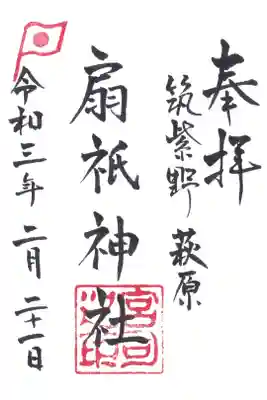 奉拝
筑紫野 萩原
扇祇神社
令和三年 二月 二十一日